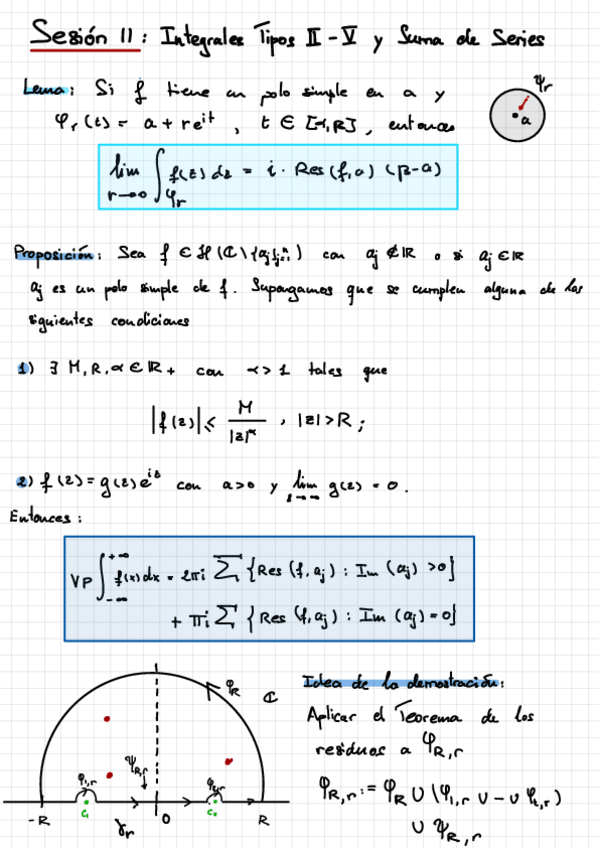 Sesión 11: Integrales Tipos II - V y Suma de Series
Lema: Si f tiene un polo simple en a y
φ_r(t) = a + re^{it}, t ∈ [α,β], entonces
φ_r
a
lim_{r→0} ∫_{φ_r} f(z) dz = i · Res(f,a) (β-α)
Proposición: Sea f ∈ H(ℂ\{a_j}_{j=1}^n) con a_j ∉ ℝ o si a_j ∈ ℝ
a_j es un polo simple de f. Supongamos que se cumplen alguna de las
siguientes condiciones
1) ∃ M, R, α ∈ ℝ+ con α > 1 tales que
|f(z)| ≤ M/|z|^α, |z| > R;
2) f(z) = g(z)e^{iz} con a>0 y lim_{z→∞} g(z) = 0.
Entonces:
VP ∫_{-∞}^{+∞} f(x)dx = 2πi Σ {Res(f,a_j) : Im(a_j) > 0}
+ πi Σ {Res(f,a_j) : Im(a_j) = 0}
Idea de la demostración:
Aplicar el Teorema de los
residuos a φ_{R,r}
φ_{R,r} := φ_R ∪ (φ_{1,r} ∪ -- ∪ φ_{k,r})
∪ ψ_{R,r}
φ_R
ℂ
φ_{1,r}
ψ_{R,r}
φ_{2,r}
-R
c_1
γ_r
0
c_2
R